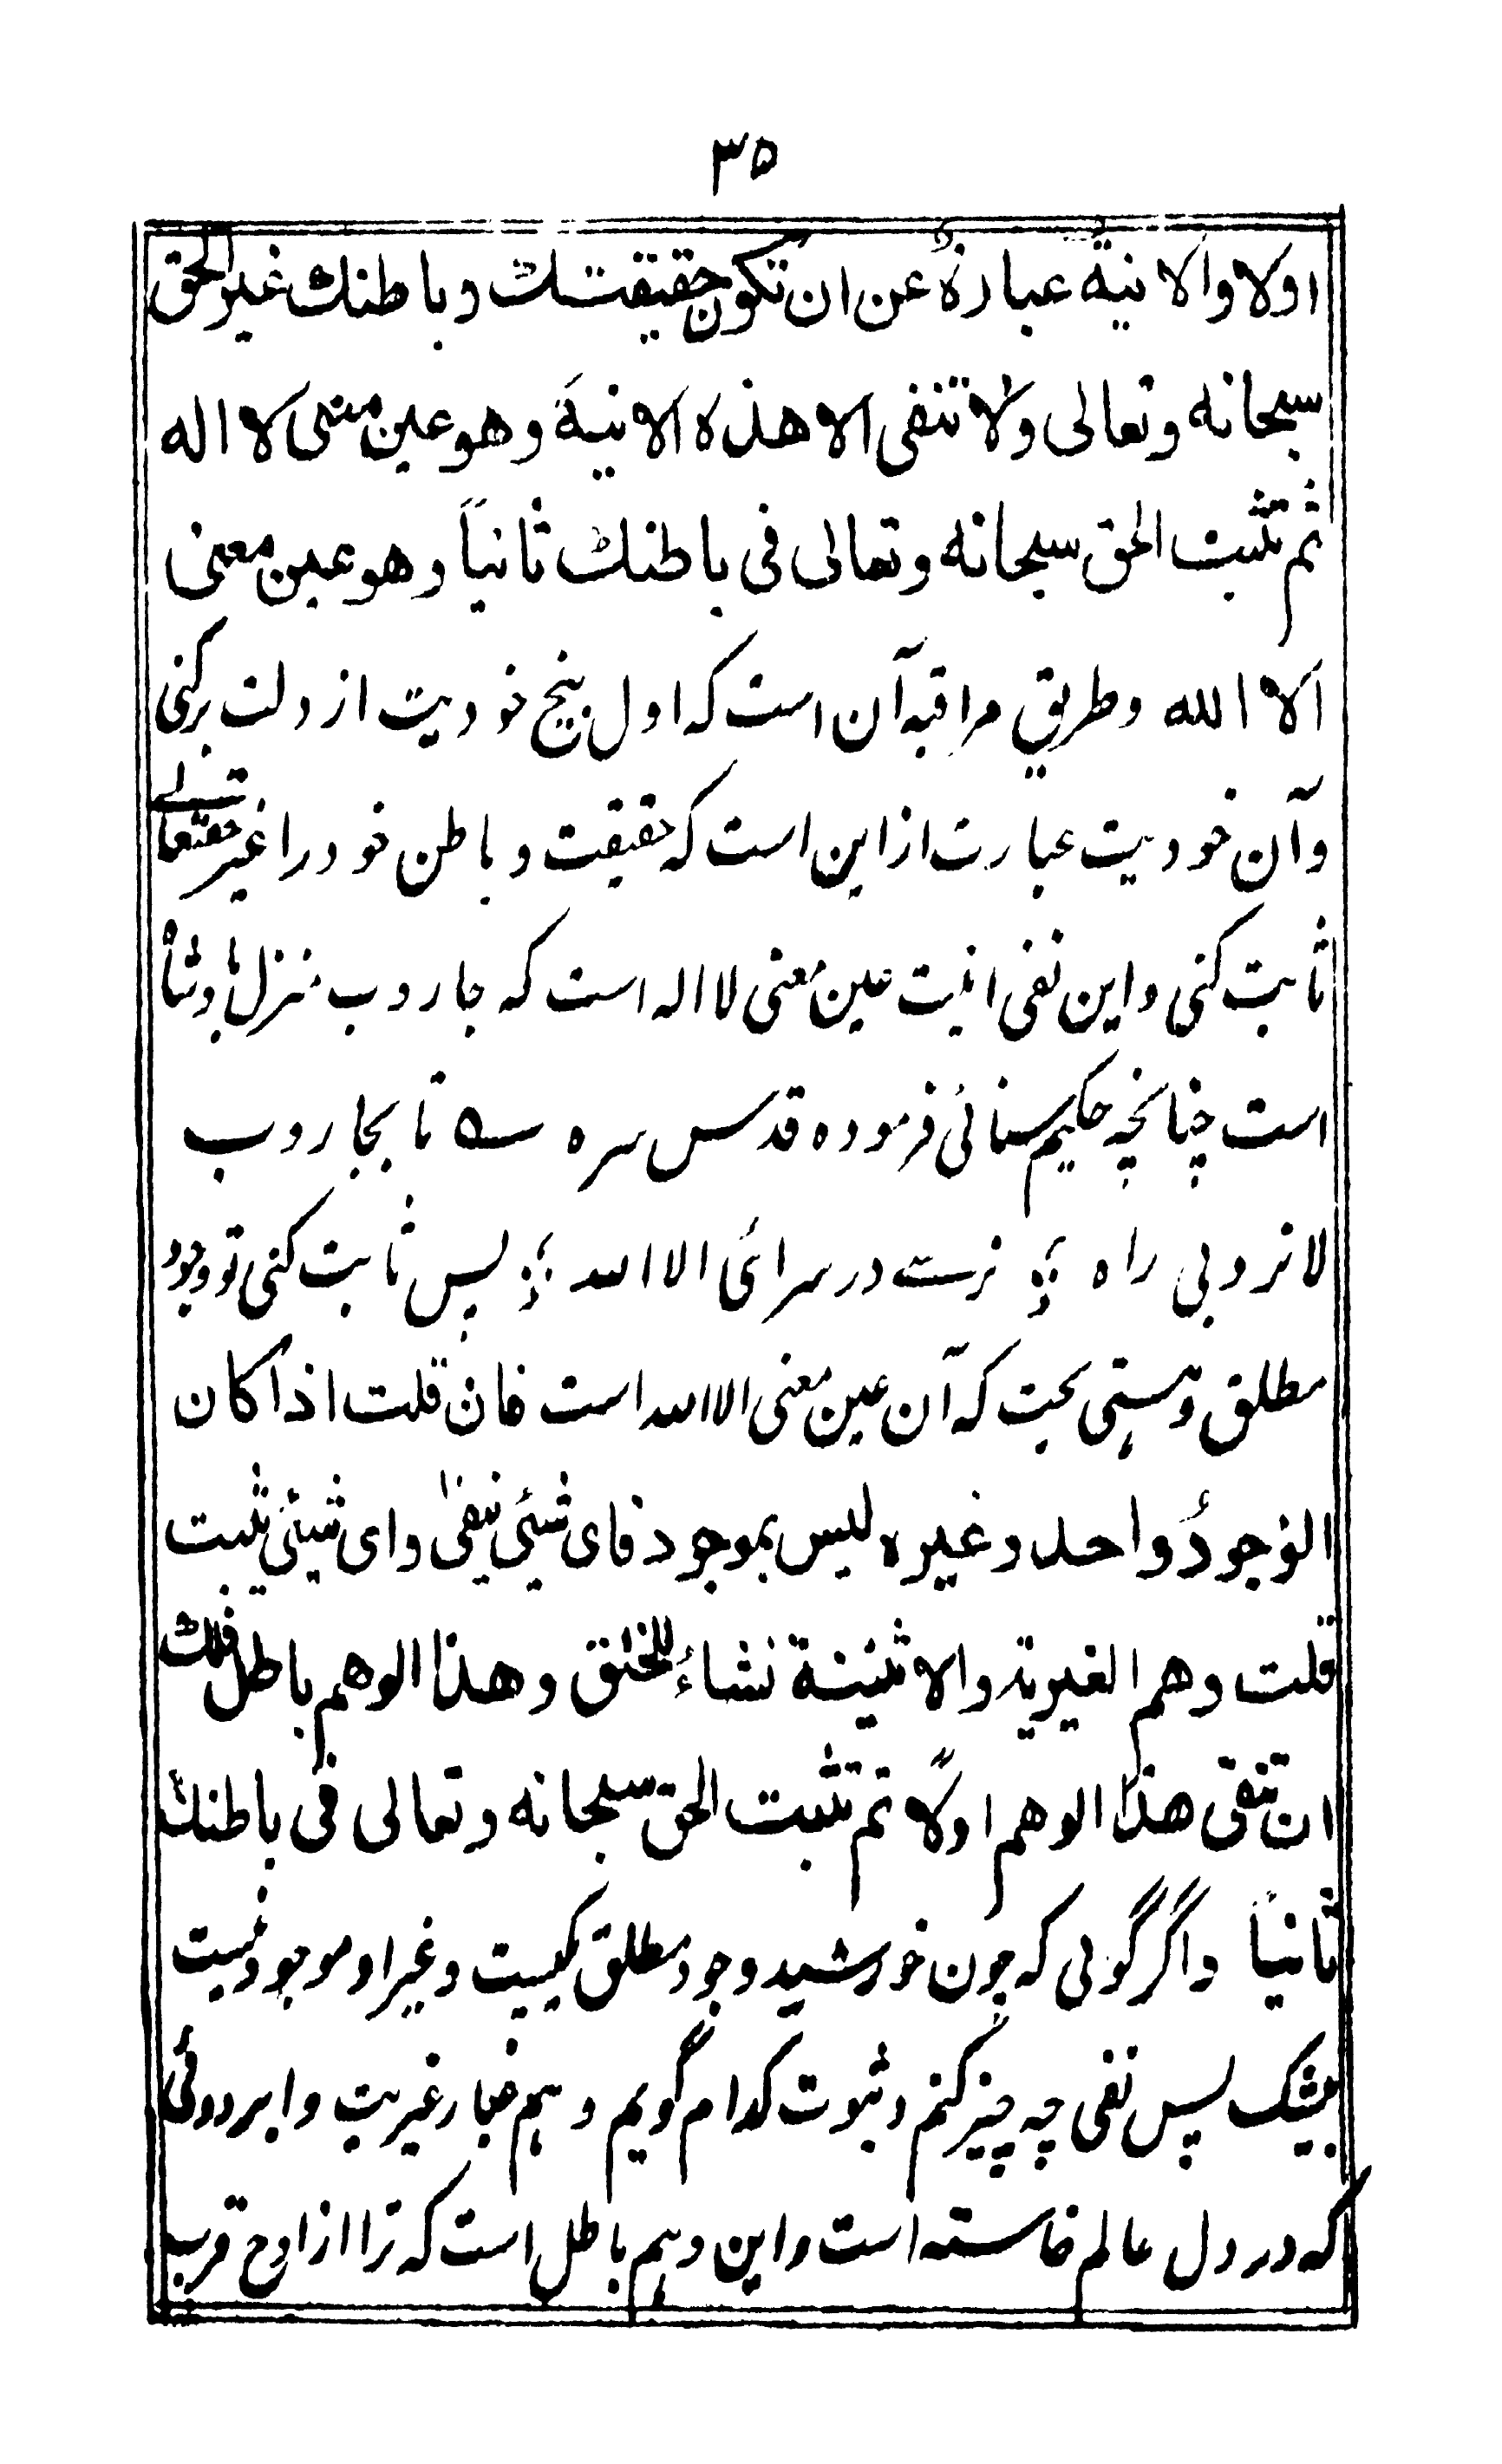 ۳۵
اولا والانية عبارة عن ان تكون حقيقتك وباطنك غير الحق
سبحانه وتعالى ولا تنفى الا هذه الانية وهو عين معنى لا اله
ثم تثبت الحق سبحانه وتعالى فى باطنك ثانياً وهو عين معنى
الا الله وطریق مراقبه آن است که اول بیخ خودیت از دلت برکنی
وآن خودیت عبارت از این است که حقیقت و باطن خود را غیر حقتعالے
ثابت کنی و این نفی انیت عین معنی لا اله است که جاروب منزل پادشاه
است چنانچه حکیم سنائی فرموده قدس سره ے تا بجاروب
لا نروبی راه ؛ نرست در سرائ الا الله ؛ پس ثابت کنی تو وجود
مطلق و هستی بحت که آن عین معنی الا الله است فان قلت اذا كان
الوجودُ واحد وغيره ليس بموجود فاى شيئ ينفىٰ واى شيئ يثبت
قلت وهم الغيرية والاثنينة نشاءُ للخلق وهذا الوهم باطل فلك
ان تنفى هذا الوهم اولاً ثم تثبت الحق سبحانه وتعالى فى باطنك
ثانياً واگر گوئی که چون خورشید وجود مطلق یکیست و غیر او موجود نیست
بیشک پس نفی چه چیز کنم و ثبوت کدام گویم وهم غبار غیریت و ابر دوئی
که در دل عالم خاسته است و این وهم باطل است که ترا از اوج قرب